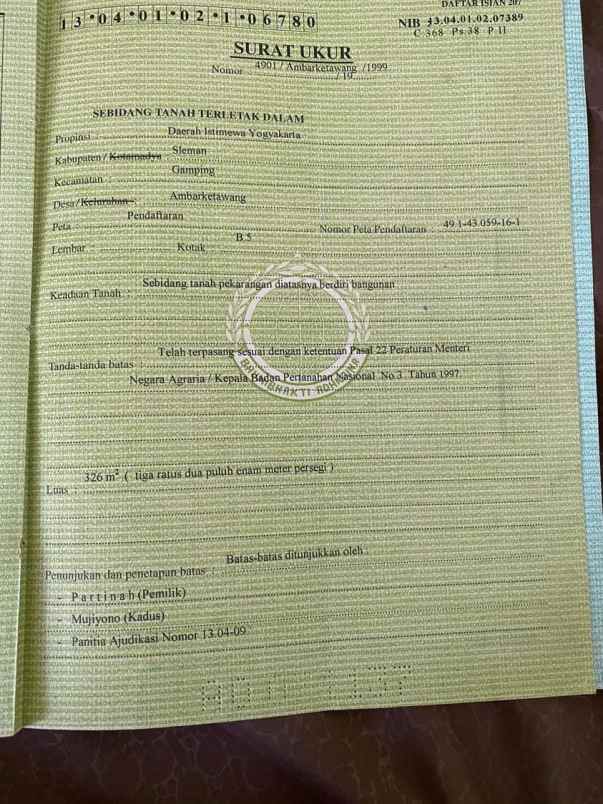 DAFTAR ISIAN 207
13•04•01•02•1•06780
NIB 13.04.01.02.07389
C 368 Ps 38 P 11
SURAT UKUR
Nomor 4901 / Ambarketawang /1999
/ 19
SEBIDANG TANAH TERLETAK DALAM
Propinsi : Daerah Istimewa Yogyakarta
Kabupaten / Kotamadya Sleman
Kecamatan : Gamping
Desa / Kelurahan : Ambarketawang
Peta : Pendaftaran Nomor Peta Pendaftaran 49.1-43.059-16-1
Lembar : B.5 Kotak
Keadaan Tanah : Sebidang tanah pekarangan diatasnya berdiri bangunan
Tanda-tanda batas : Telah terpasang sesuai dengan ketentuan Pasal 22 Peraturan Menteri
Negara Agraria / Kepala Badan Pertanahan Nasional No.3 Tahun 1997.
Luas : 326 m² ( tiga ratus dua puluh enam meter persegi )
Penunjukan dan penetapan batas : Batas-batas ditunjukkan oleh :
- P a r t i n a h (Pemilik)
- Mujiyono (Kadus)
- Panitia Ajudikasi Nomor 13.04-09